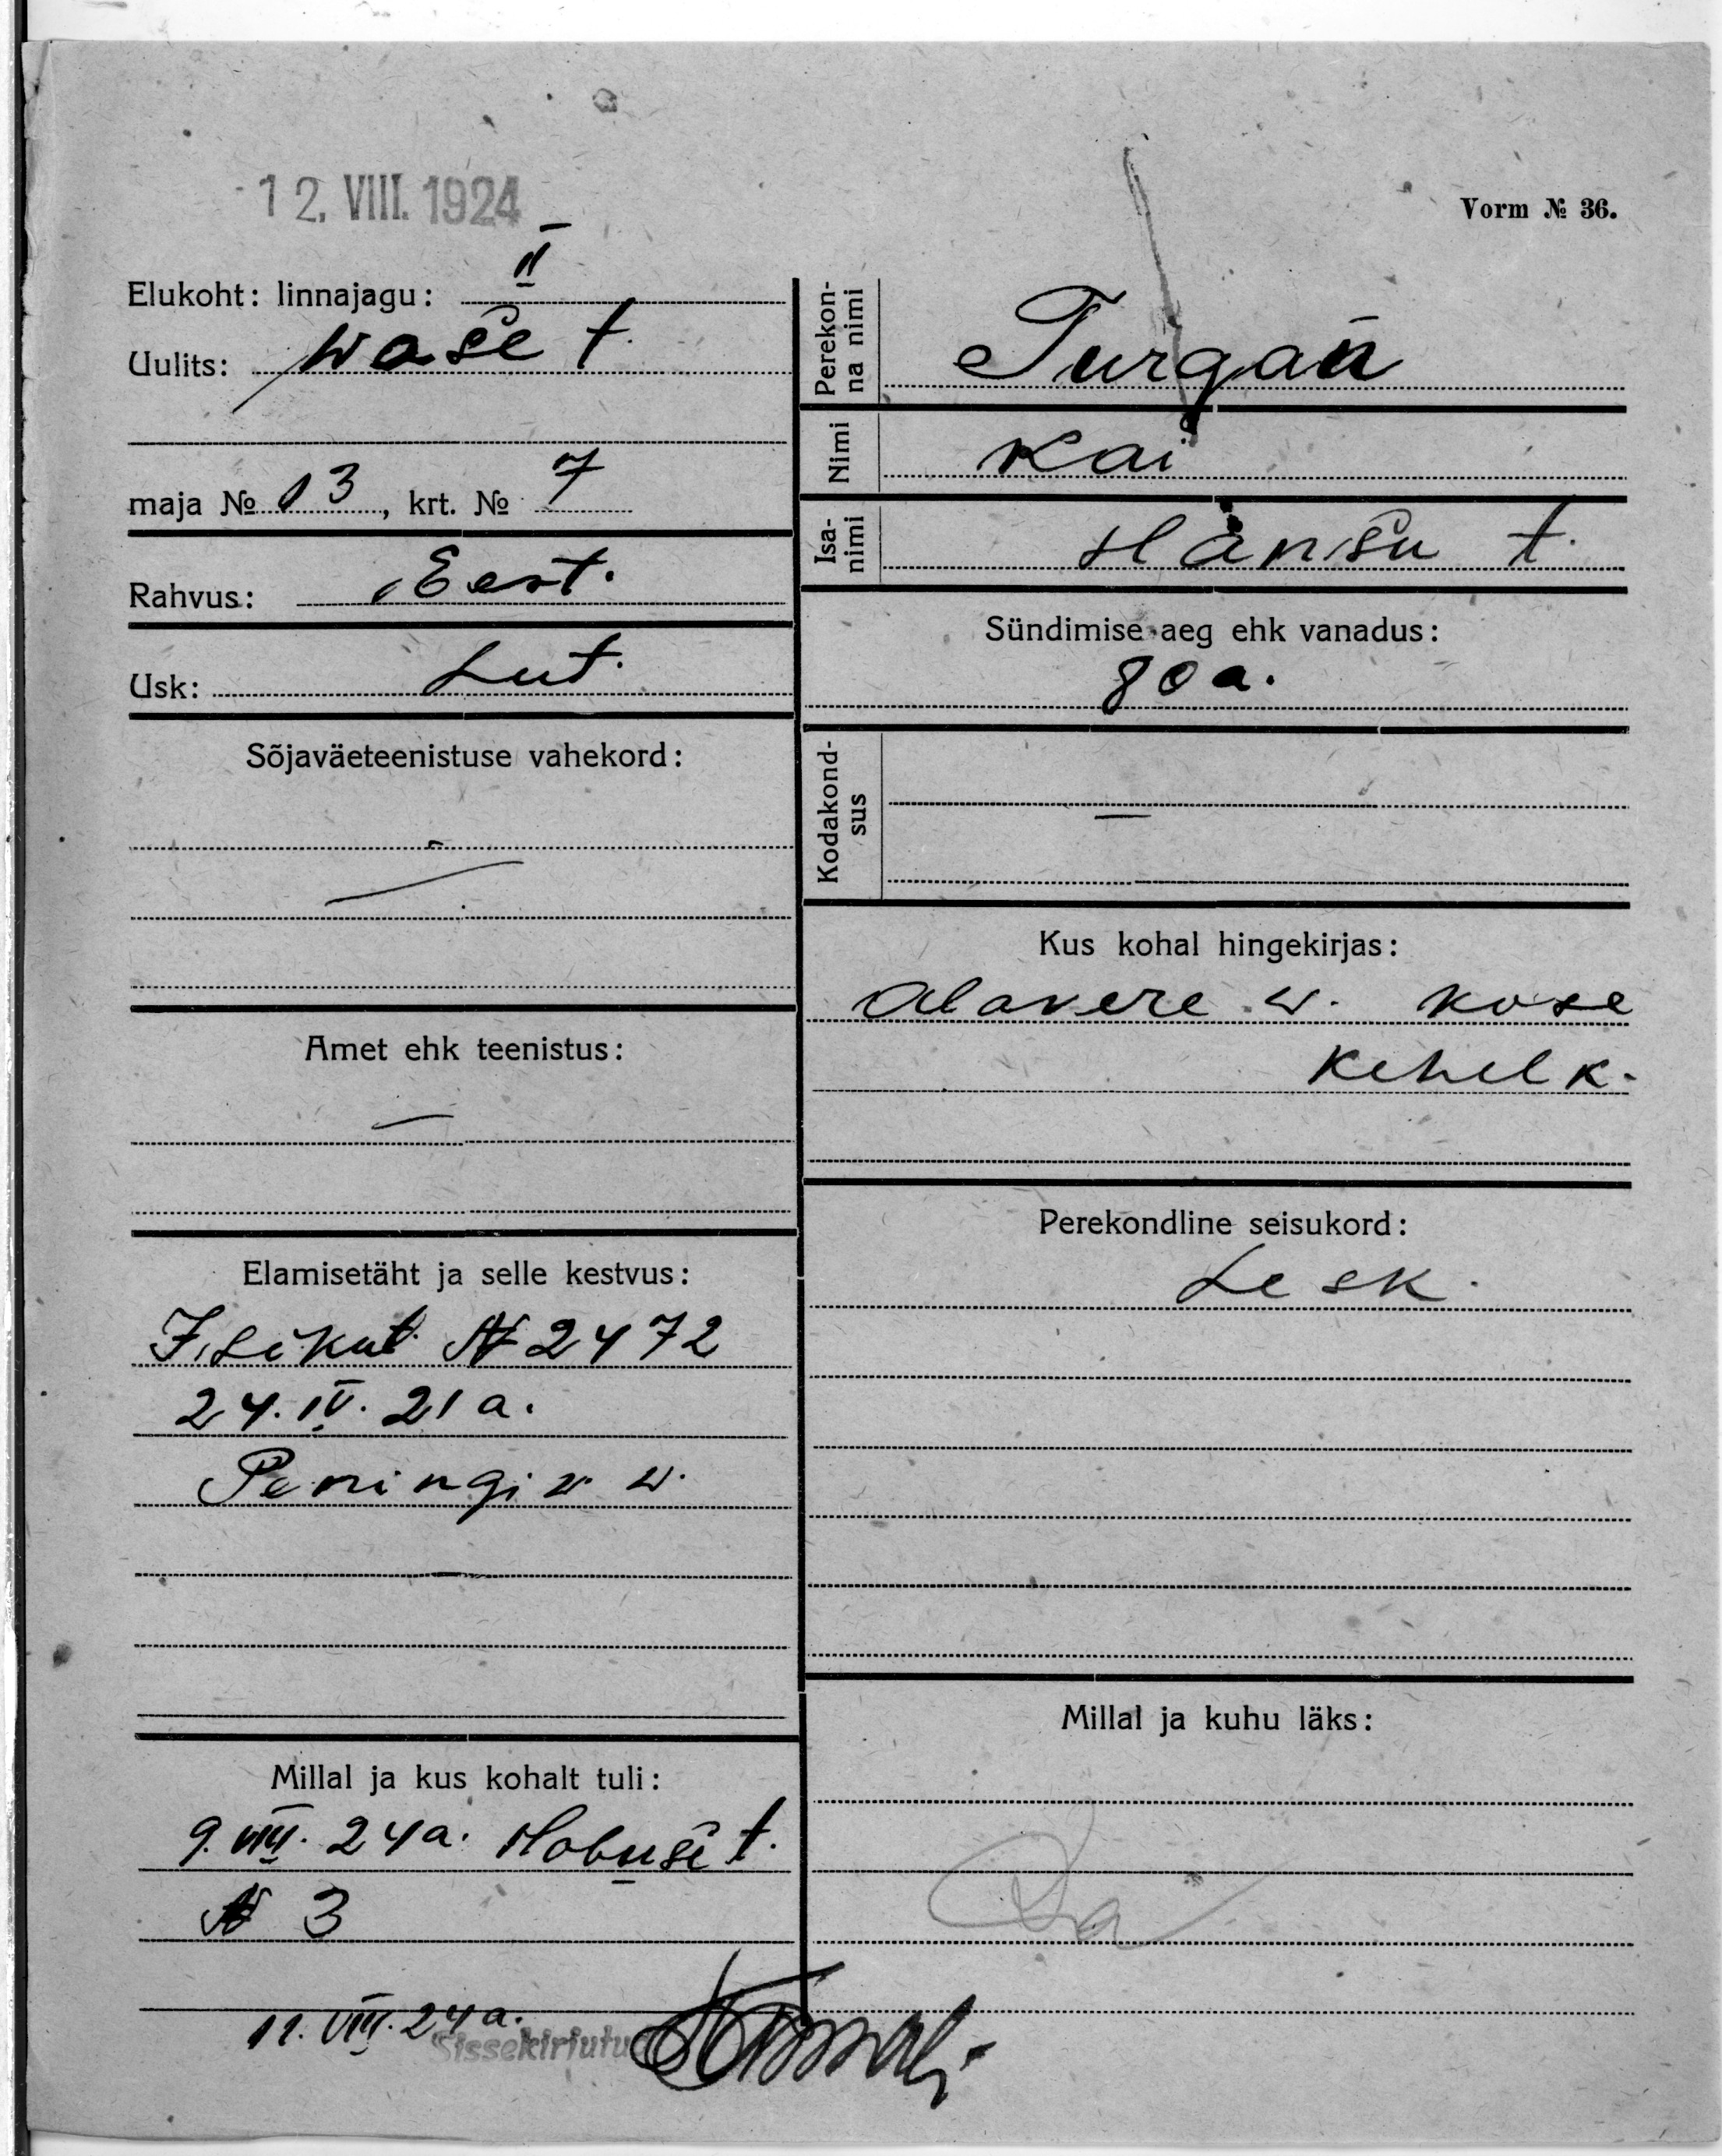 12. VIII. 1924
Vorm № 36.
Elukoht: linnajagu: II
Uulits: Wase t.
maja № 13, krt. № 7
Rahvus: Eest.
Usk: Lut.
Sõjaväeteenistuse vahekord:
—
Amet ehk teenistus:
—
Elamisetäht ja selle kestvus:
Isikut № 2472
24. IV. 21 a.
Peningi w. w.
Millal ja kus kohalt tuli:
9. VIII. 24 a. Hobuse t.
№ 3
11. VIII. 24 a.
Sissekirjutud
Perekonna nimi
Turgan
Nimi
Kai
Isanimi
Hansu t.
Sündimise aeg ehk vanadus:
80 a.
Kodakondsus
—
Kus kohal hingekirjas:
Alavere w. Kose
Kehelk.
Perekondline seisukord:
Lesk.
Millal ja kuhu läks: